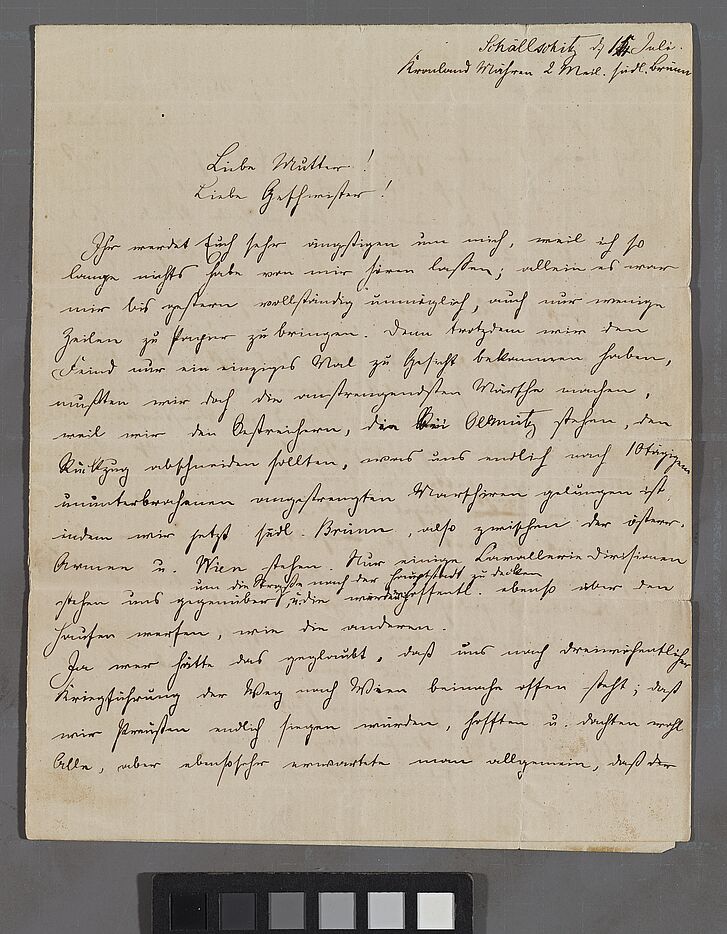 Schällschitz d. 15 Juli.
Kronland Mähren 2 Meil. südl. Brünn
Liebe Mutter!
Liebe Geschwister!
Ihr werdet Euch sehr ängstigen um mich, weil ich so
lange nichts habe von mir hören lassen; allein es war
mir bis gestern vollständig unmöglich, auch nur wenige
Zeilen zu Papier zu bringen. Denn trotzdem wir den
Feind nur ein einziges Mal zu Gesicht bekommen haben,
mußten wir doch die anstrengendsten Märsche machen,
weil wir den Oestreichern, die bei Ollmütz stehen, den
Rückzug abschneiden sollten, was uns endlich nach 10tägigem
ununterbrochenen angestrengten Marschiren gelungen ist
indem wir jetzt südl. Brünn, also zwischen der österr.
Armee u. Wien stehen. Nur einige Cavallerie Divisionen
um die Straße nach der Hauptstadt zu decken
stehen uns gegenüber, u. die werden hoffentl. ebenso über den
Haufen werfen, wie die anderen.
Ja wer hätte das geglaubt, daß uns nach dreiwöchentlicher
Kriegführung der Weg nach Wien beinahe offen steht; daß
wir Preußen endlich siegen würden, hofften u. dachten wohl
Alle, aber ebensosehr erwartete man allgemein, daß der